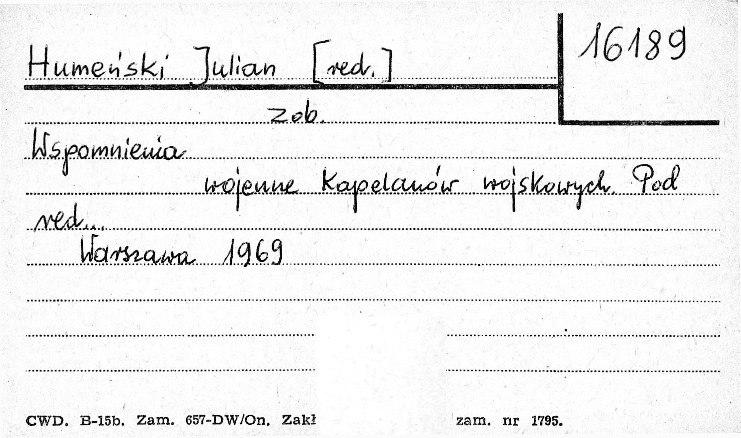 Humeński Julian [red.]
16189
zob.
Wspomnienia
wojenne kapelanów wojskowych. Pod
red...
Warszawa 1969
CWD. B-15b. Zam. 657-DW/On. Zakł zam. nr 1795.